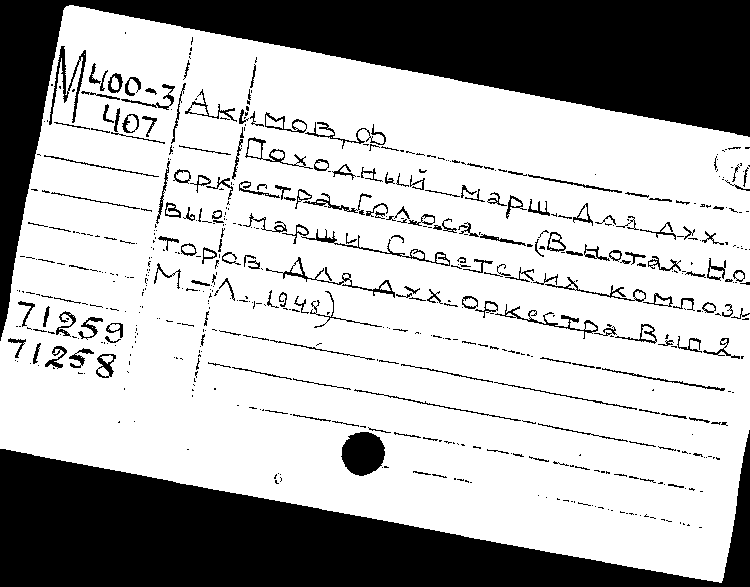 М 400-3
407
Акимов, Ф
Походный марш для дух.
оркестра. Голоса. (В нотах: Но
вые марши Советских компози
торов. Для дух. оркестра Вып 2
М-Л., 1948.)
71259
71258
11
6